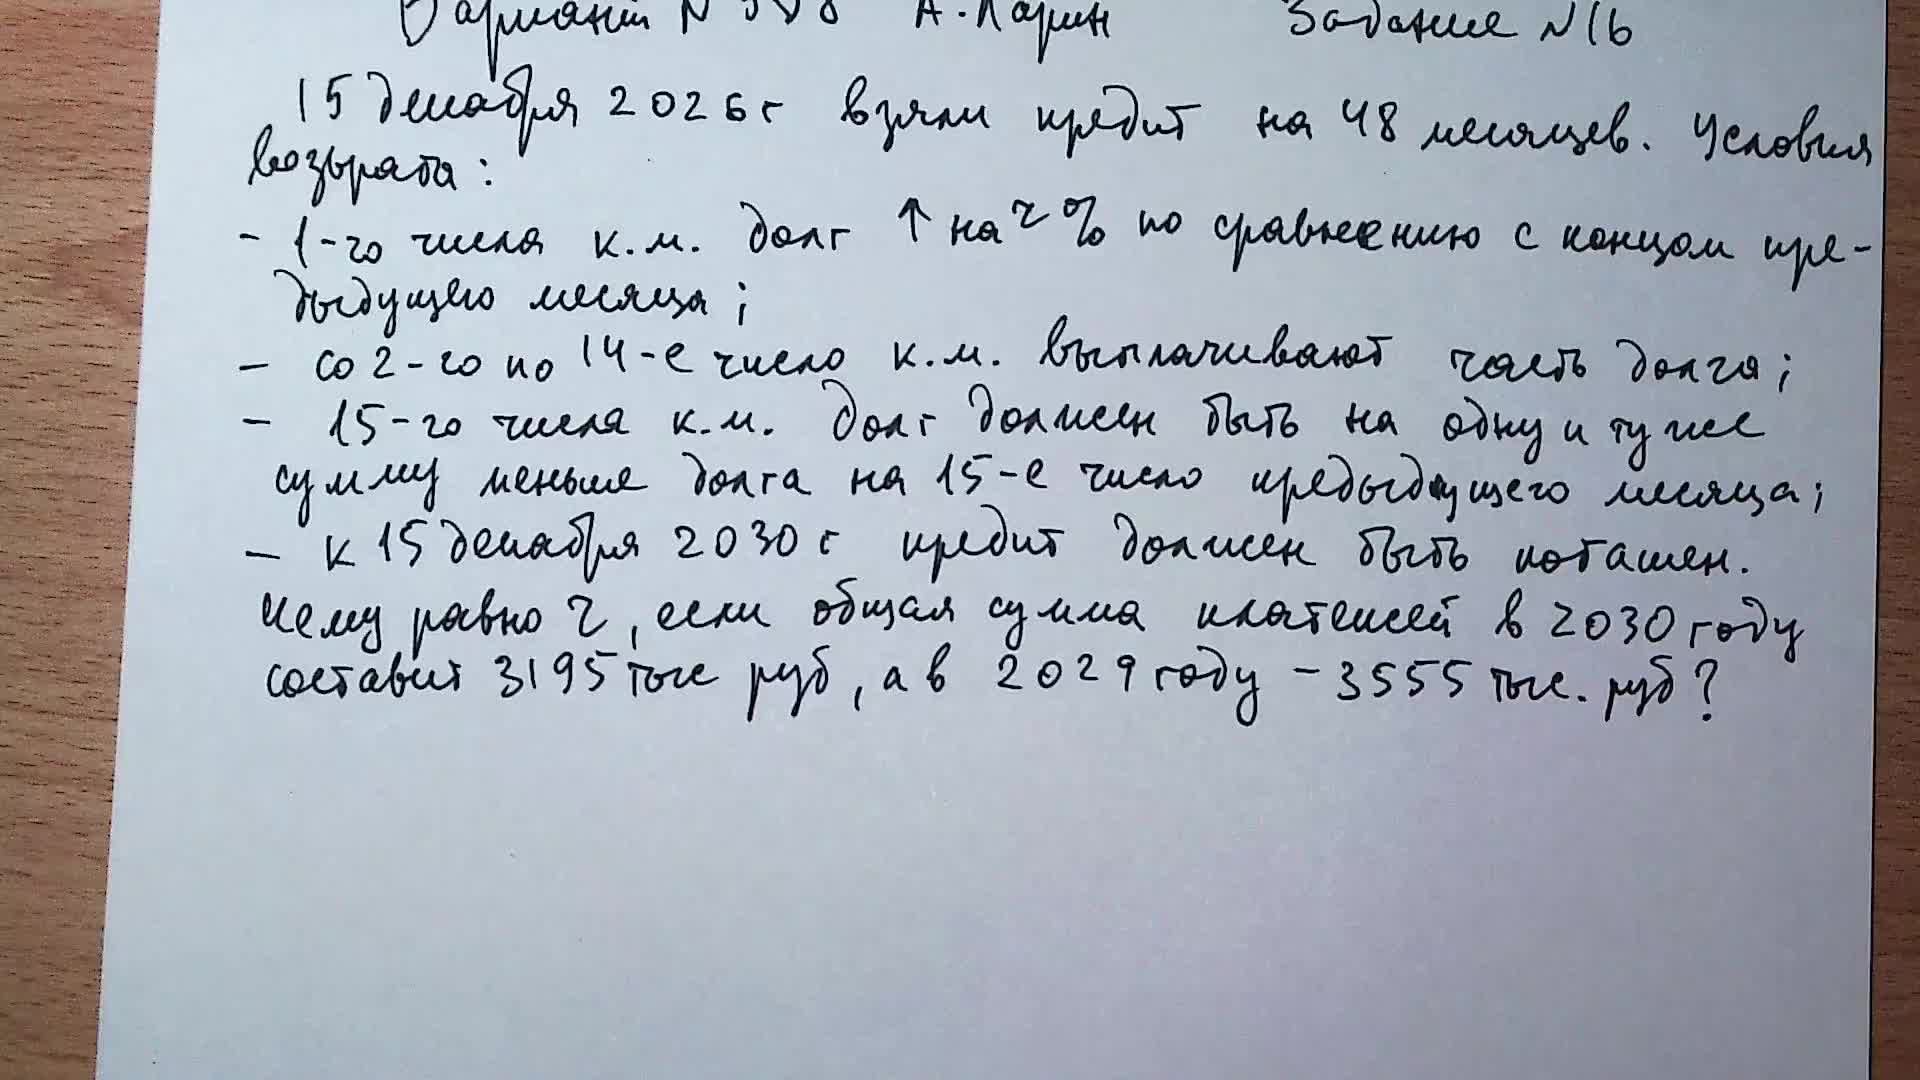 Вариант N А. Ларин Задание N16
15 декабря 2026 г взяли кредит на 48 месяцев. Условия
возврата:
- 1-го числа к.м. долг ↑ на r % по сравнению с концом пре-
дыдущего месяца;
- со 2-го по 14-е число к.м. выплачивают часть долга;
- 15-го числа к.м. долг должен быть на одну и ту же
сумму меньше долга на 15-е число предыдущего месяца;
- к 15 декабря 2030 г кредит должен быть погашен.
Чему равно r, если общая сумма платежей в 2030 году
составит 3195 тыс руб, а в 2029 году - 3555 тыс. руб?